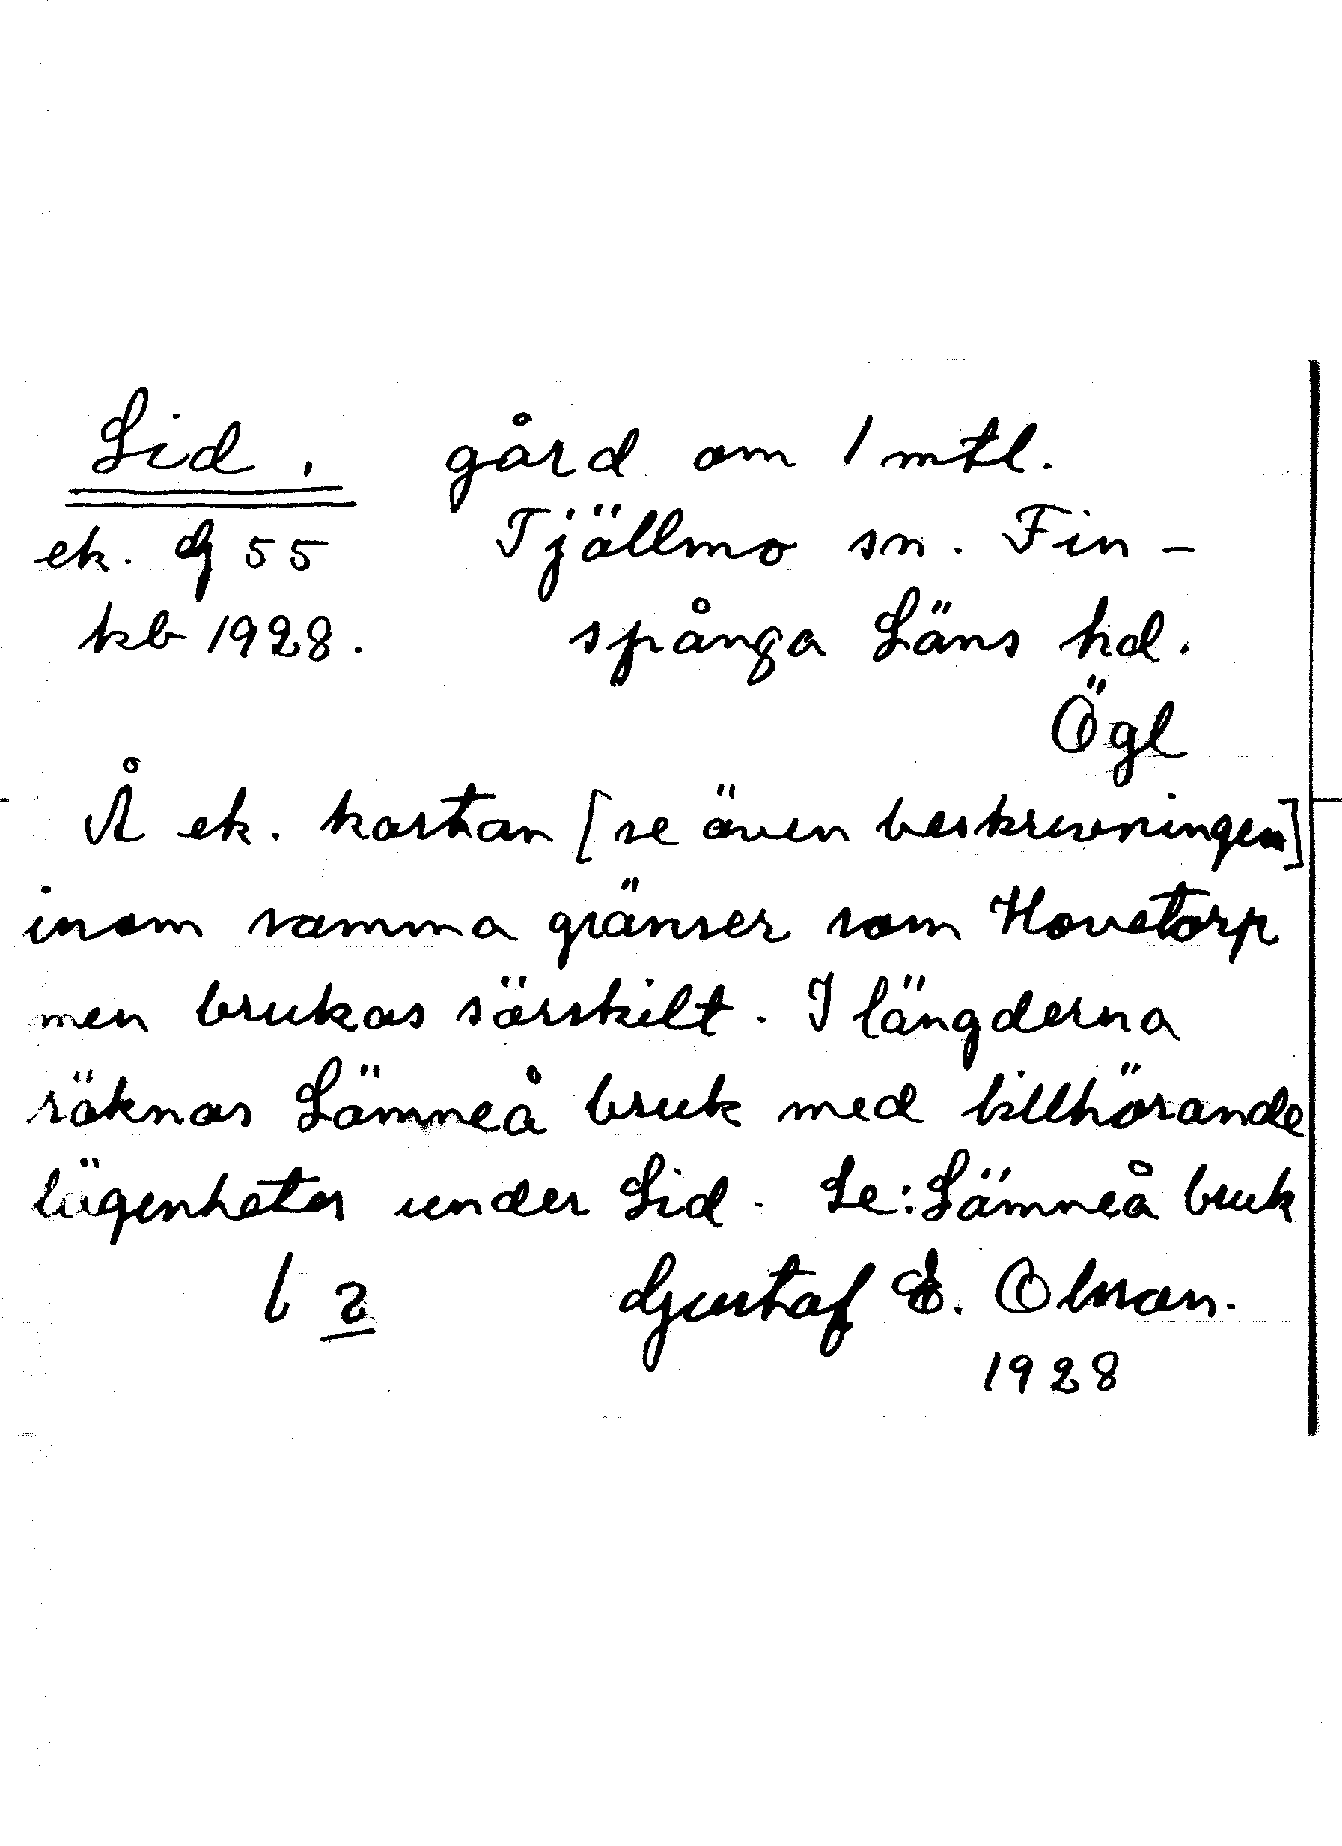 Lid, gård om 1 mtl.
ek. G 55 Tjällmo sn. Fin-
kb 1928. spånga Läns hd.
Ögl
Å ek. kartan [se även beskrivningen]
inom samma gränser som Hovetorp
men brukas särskilt. I längderna
räknas Lämneå bruk med tillhörande
lägenheter under Lid. Se: Lämneå bruk
Gustaf E. Olsson.
1928